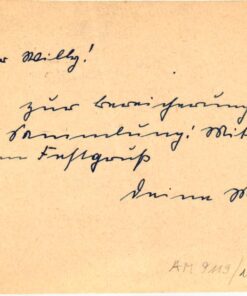 r Willy!
zur Bereicherung
Sammlung! Mit
m Festgruß
Deine M
AM 9119/